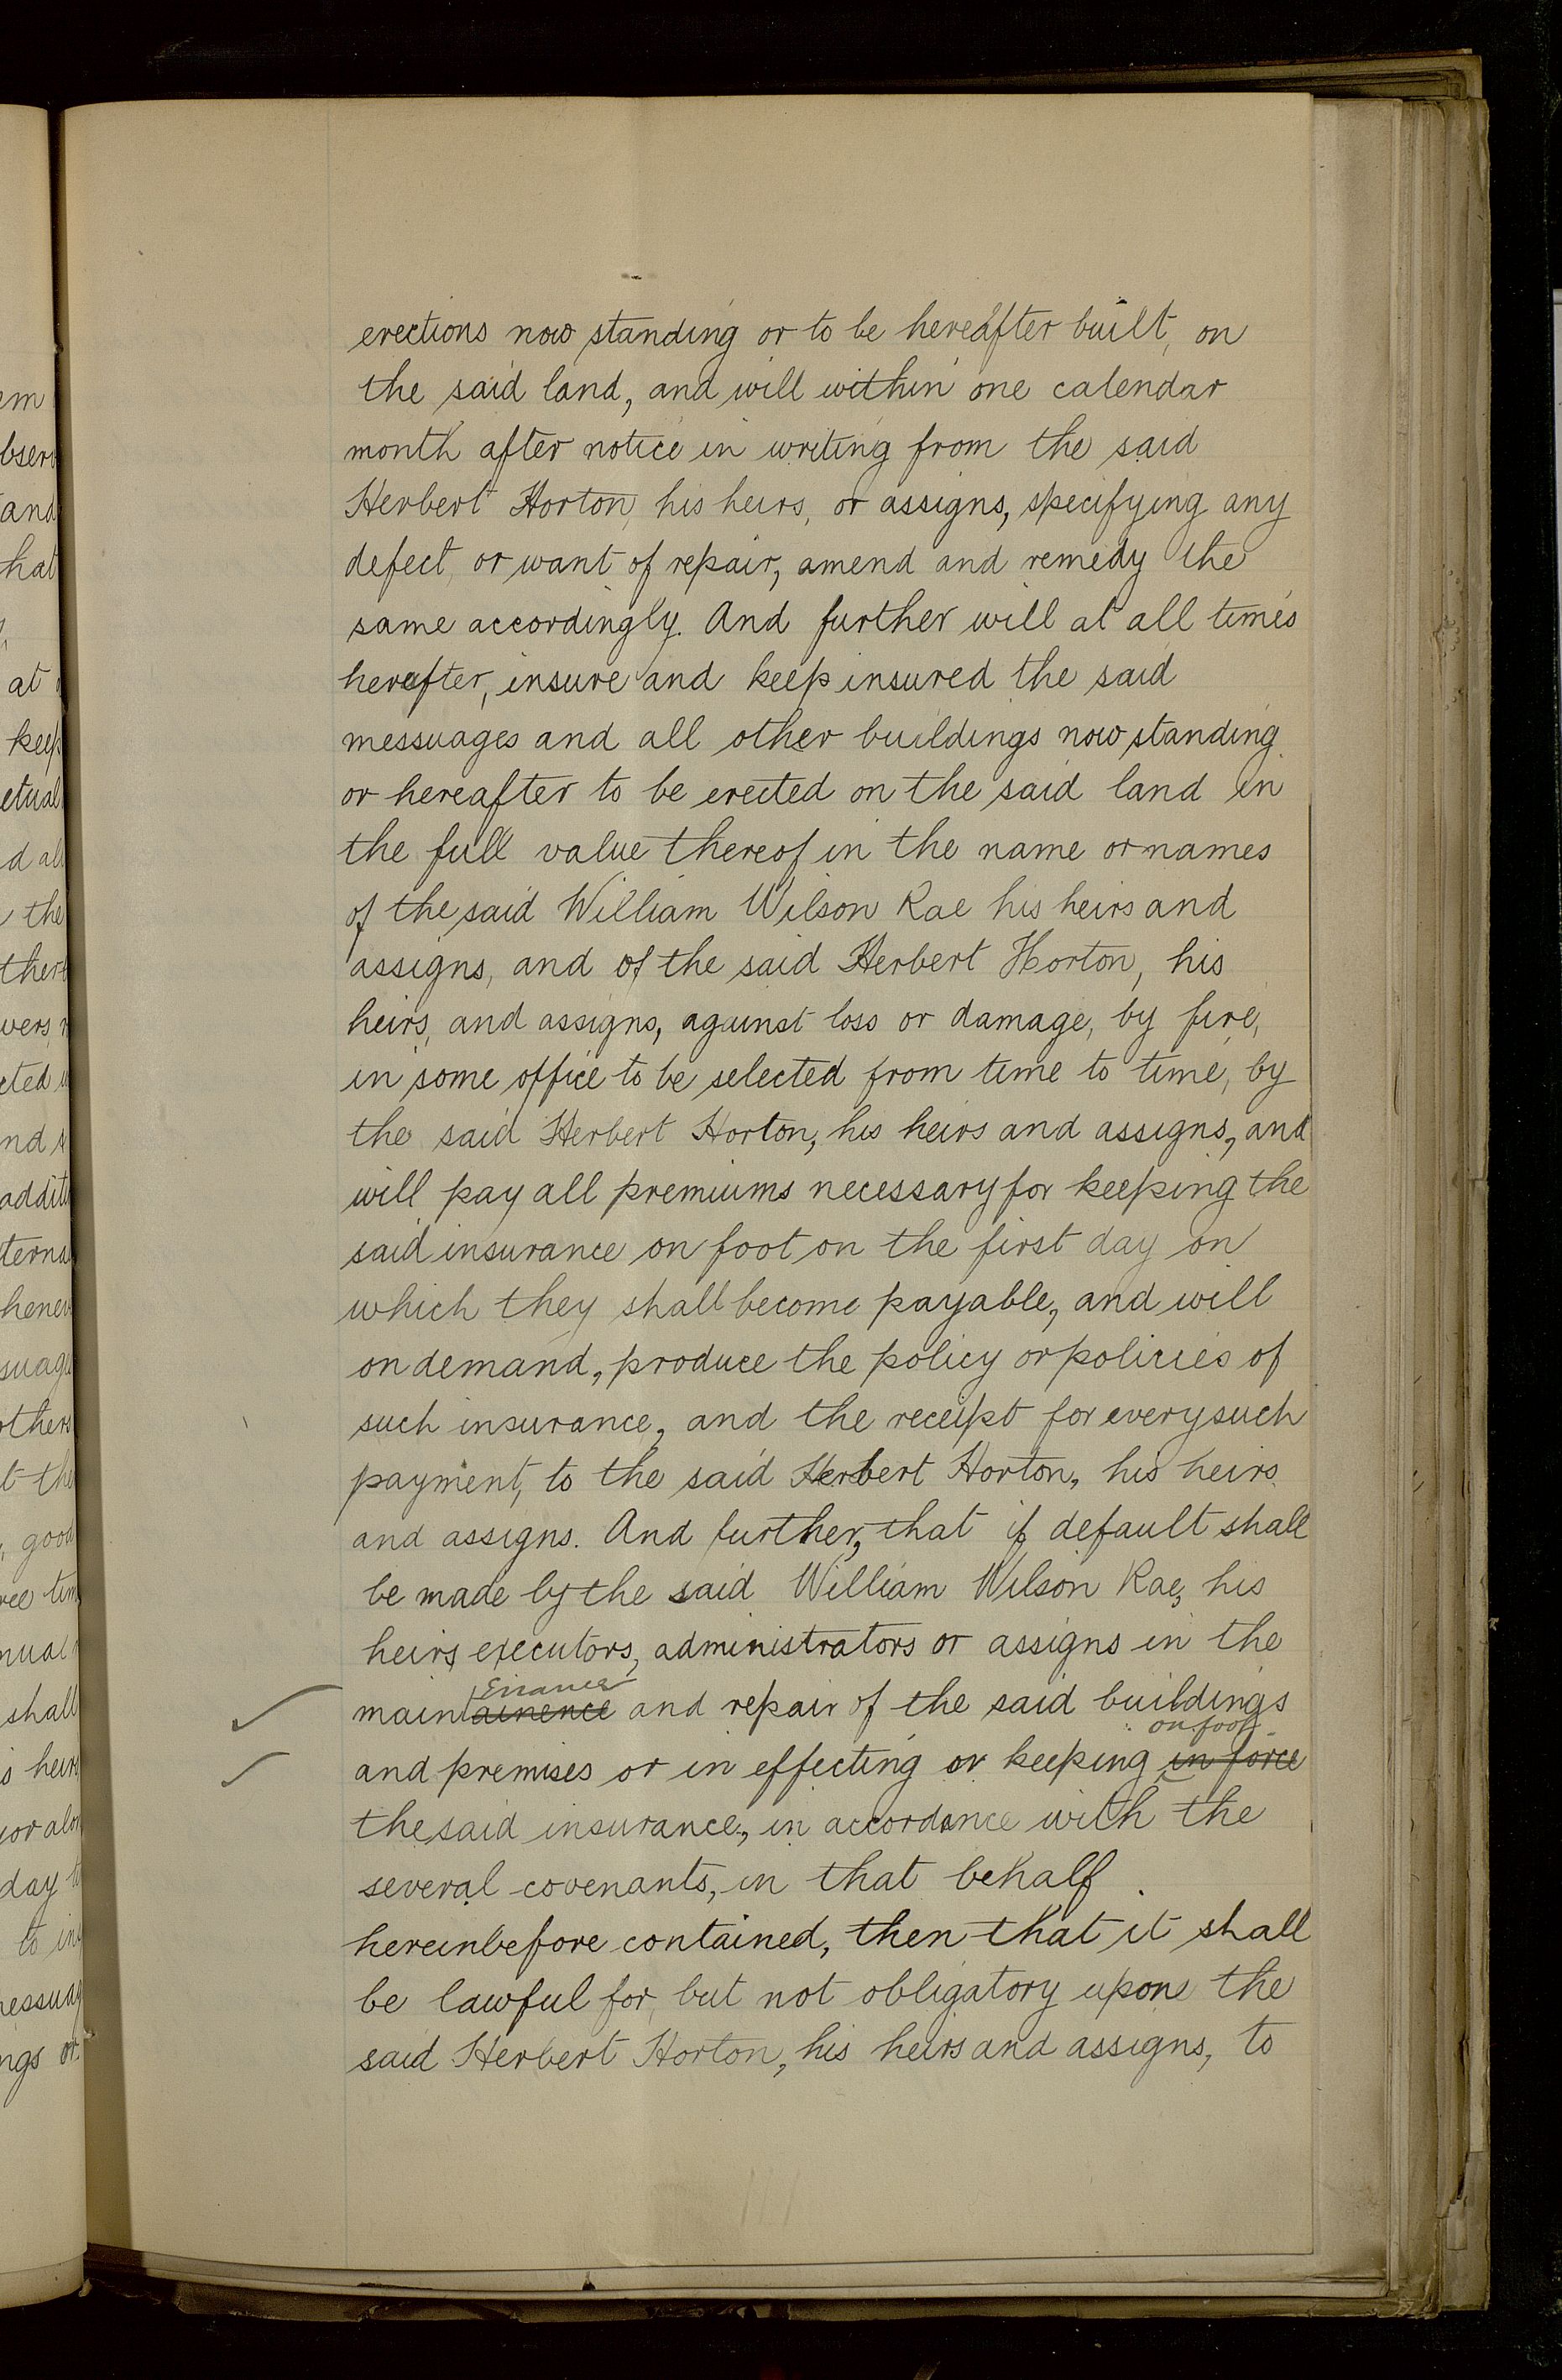 erections now standing or to be hereafter built, on
the said land, and will within one calendar
month after notice in writing from the said
Herbert Horton, his heirs, or assigns, specifying any
defect, or want of repair, amend and remedy the
same accordingly. And further will at all times
hereafter, insure and keep insured the said
messuages and all other buildings now standing
or hereafter to be erected on the said land in
the full value thereof in the name or names
of the said William Wilson Rae his heirs and
assigns, and of the said Herbert Horton, his
heirs, and assigns, against loss or damage, by fire,
in some office to be selected from time to time, by
the said Herbert Horton, his heirs and assigns, and
will pay all premiums necessary for keeping the
said insurance on foot on the first day on
which they shall become payable, and will
on demand, produce the policy or policies of
such insurance, and the receipt for every such
payment, to the said Herbert Horton, his heirs
and assigns. And further, that if default shall
be made by the said William Wilson Rae, his
heirs, executors, administrators or assigns in the
enance
maintainence and repair of the said buildings
on foot
and premises or in effecting or keeping in force
the said insurance, in accordance with the
several covenants, in that behalf
hereinbefore contained, then that it shall
be lawful for, but not obligatory upon the
said Herbert Horton, his heirs and assigns, to